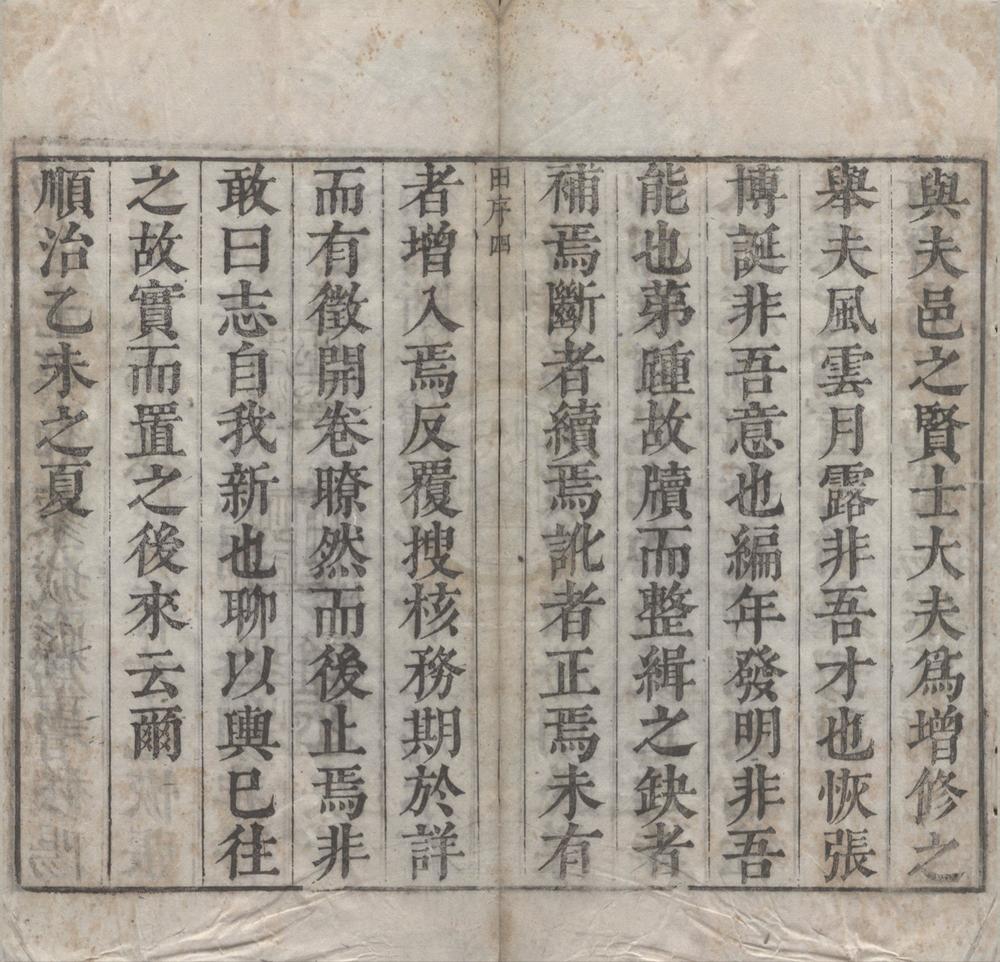 與夫邑之賢士大夫爲增修之
舉夫風雲月露非吾才也恢張
博誕非吾意也編年發明非吾
能也苐踵故牘而整緝之缺者
補焉斷者續焉訛者正焉未有
田序四
者增入焉反覆搜核務期於詳
而有徵開卷瞭然而後止焉非
敢曰志自我新也聊以輿已往
之故實而置之後來云爾
順治乙未之夏